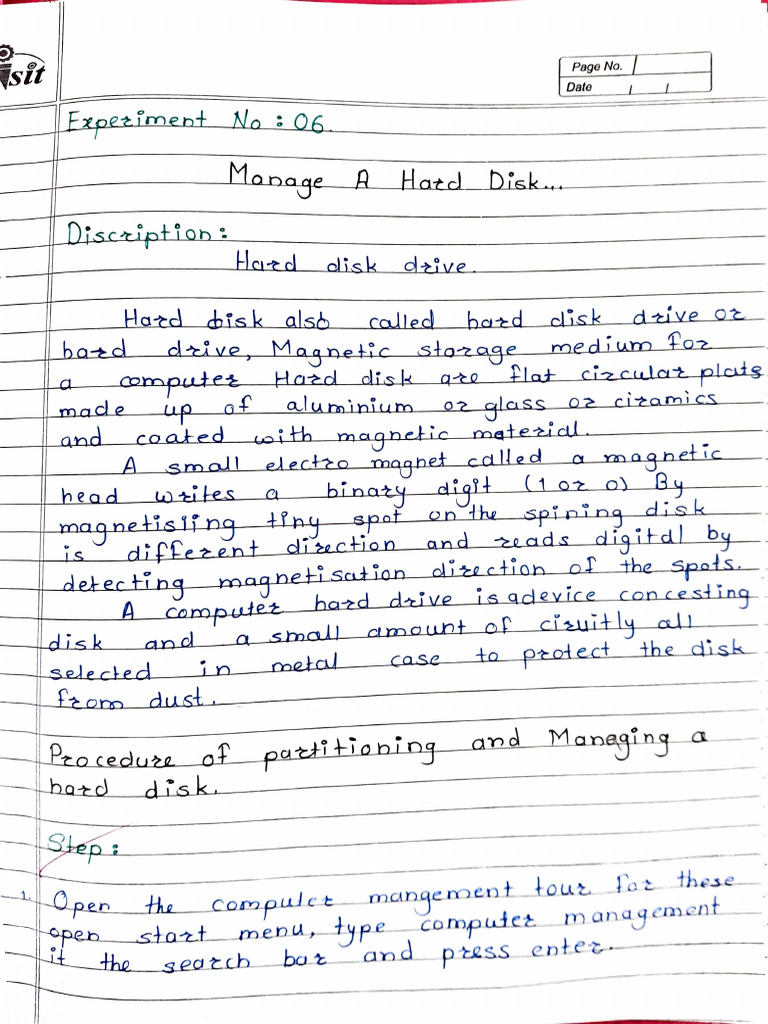 sit
Page No.
Date
Experiment No : 06.
Manage A Hard Disk...
Discription :
Hard disk drive.
Hard disk also called hard disk drive or
hard drive, Magnetic storage medium for
a computer Hard disk are flat circular plats
made up of aluminium or glass or ciramics
and coated with magnetic material.
A small electro magnet called a magnetic
head writes a binary digit (1 or 0) By
magnetisiing tiny spot on the spining disk
is different direction and reads digital by
detecting magnetisation direction of the spots.
A computer hard drive is a device concesting
disk and a small amount of ciruitly all
selected in metal case to protect the disk
from dust.
Procedure of partitioning and Managing a
hard disk.
Step :
1. Open the computer mangement tour for these
open start menu, type computer management
it the search bar and press enter.